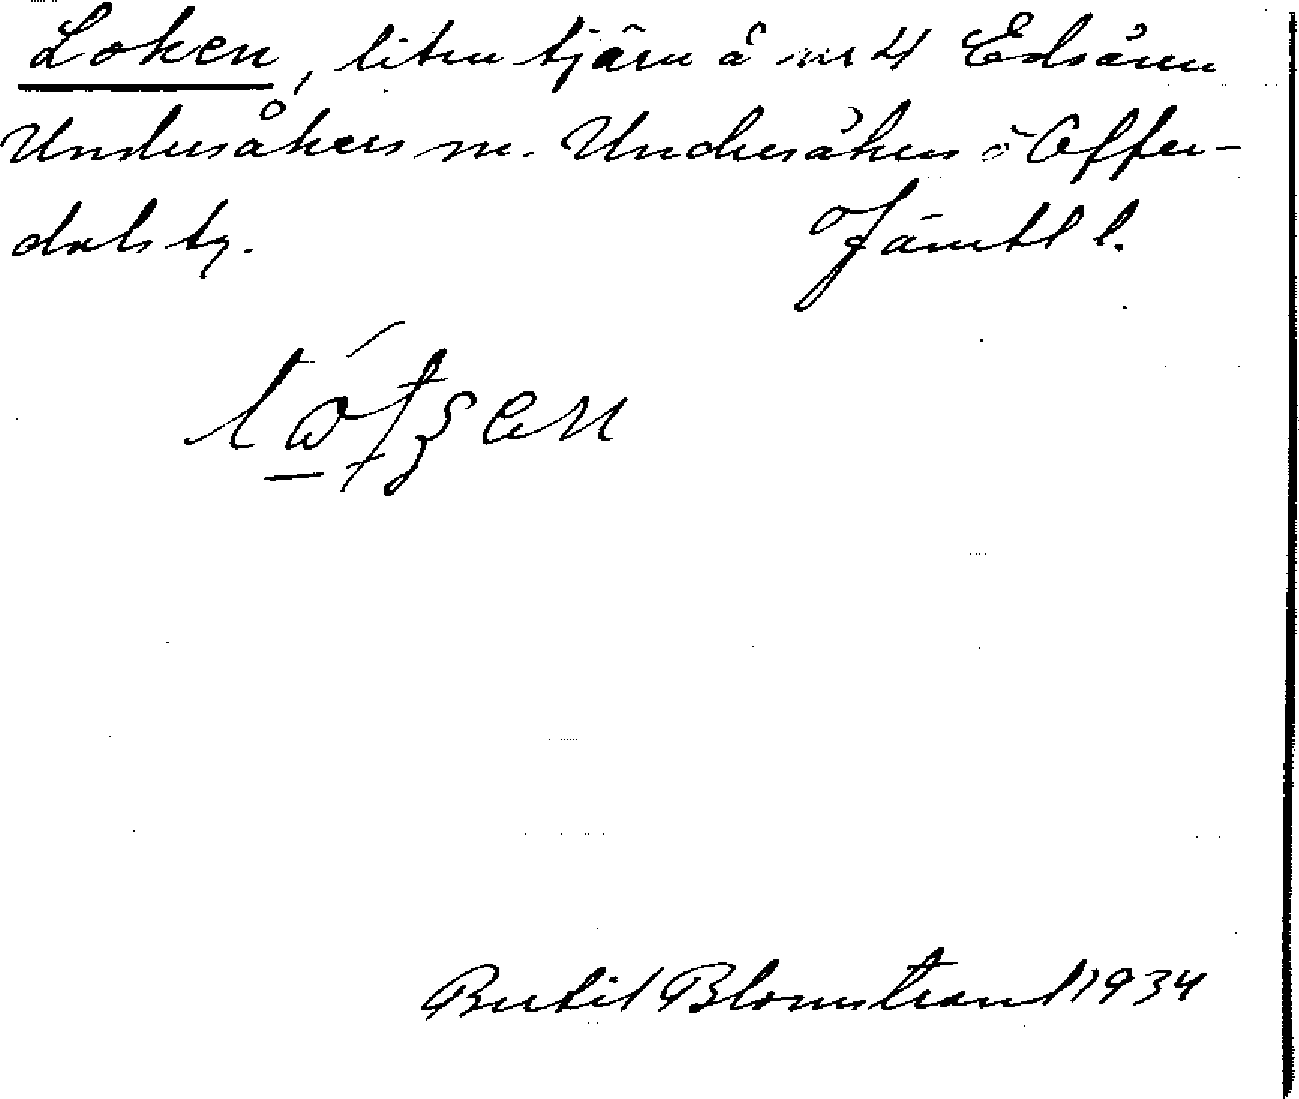 Loken, liten tjärn å nr 4 Edsåsen
Undersåkers sn. Undersåkers o Offer-
dals tg. Jämtl l.
Bertil Blomstrand 1934